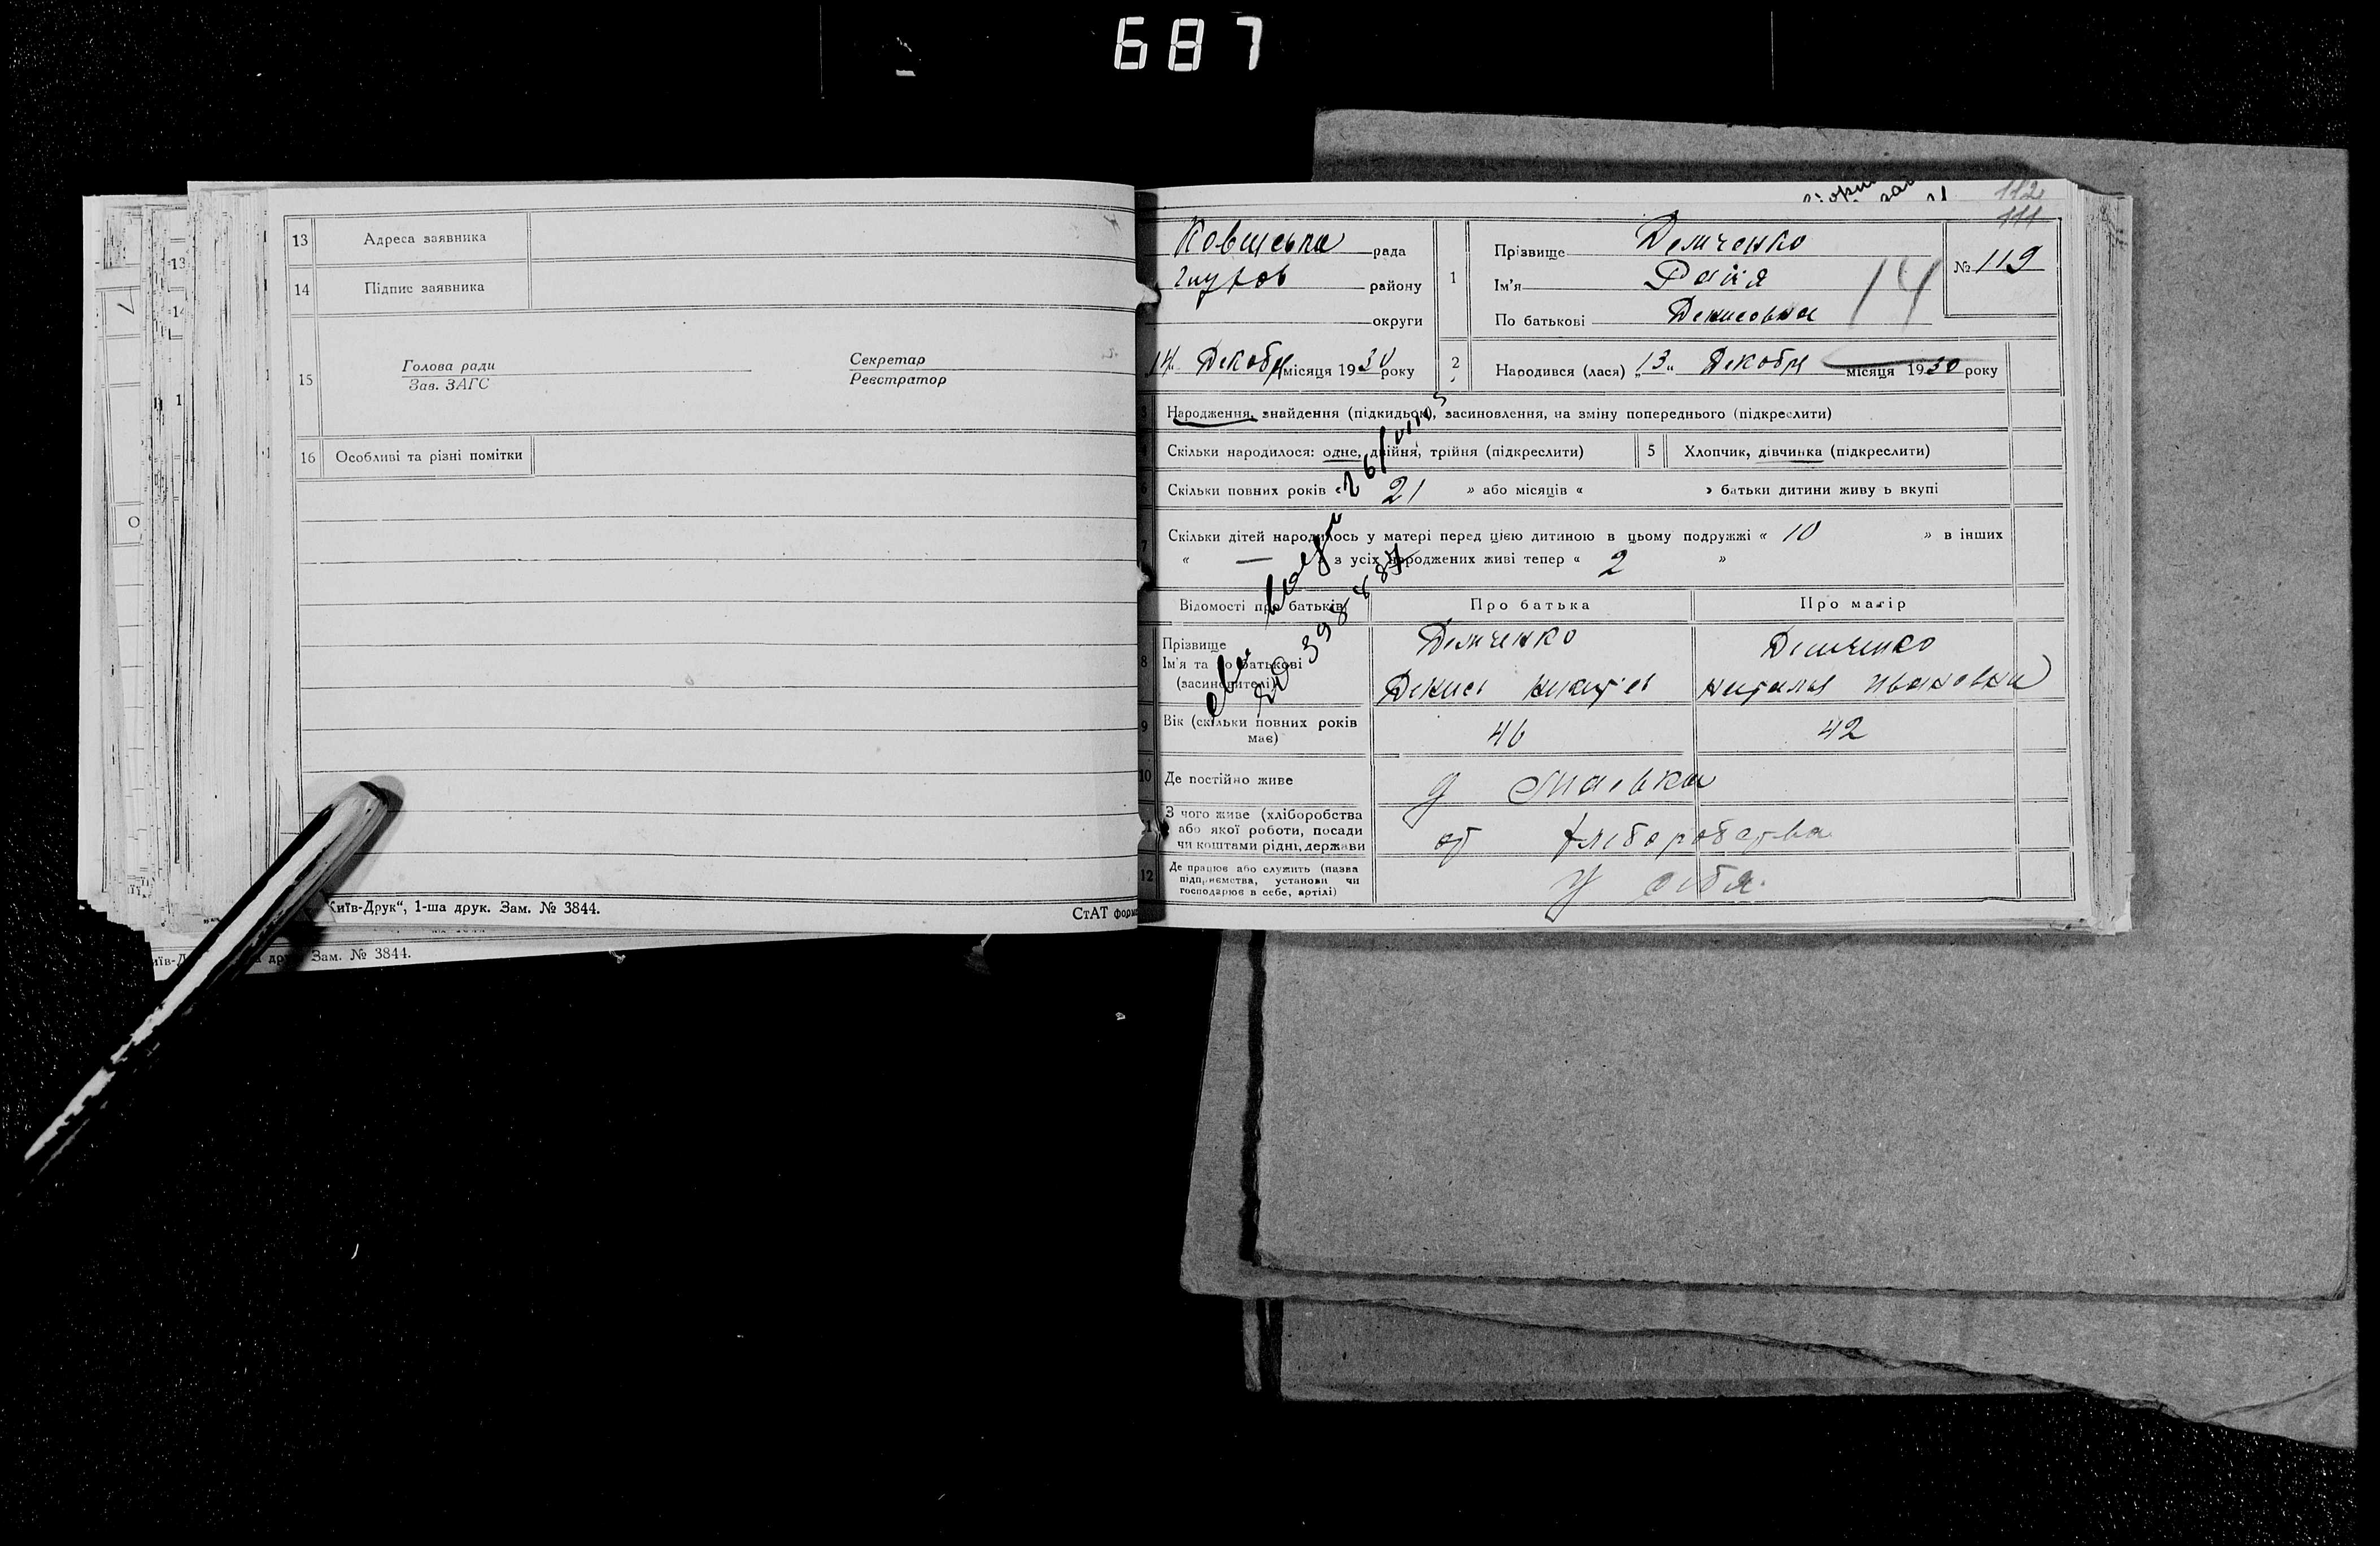 687
13 Адреса заявника
14 Підпис заявника
15 Голова ради
Зав. ЗАГС
Секретар
Реєстратор
16 Особливі та різні помітки
Київ-Друк“, 1-ша друк. Зам. № 3844.
СтАТ форма
Зам. № 3844.
112
111
рада
району
округи
14 Декобря місяця 1930 року
1 Прізвище Демченко
Ім'я Раїя
По батькові Денисовна
14
№ 119
2 Народився (лася) „13„ Декобря місяця 1930 року
3 Народження, знайдення (підкидьок), засиновлення, на зміну попереднього (підкреслити)
Скільки народилося: одне, двійня, трійня (підкреслити) 5 Хлопчик, дівчинка (підкреслити)
6 Скільки повних років « 21 » або місяців « » батьки дитини живу ь вкупі
7 Скільки дітей народилось у матері перед цією дитиною в цьому подружжі « 10 » в інших
« — з усіх народжених живі тепер « 2 »
Відомості про батьків Про батька Про матір
8 Прізвище
Ім'я та по батькові
(засиновителі)
Демченко
Денис
Демченко
Наталья Ивановна
9 Вік (скільки повних років
має)
46 42
10 Де постійно живе
З чого живе (хліборобства
або якої роботи, посади
чи коштами рідні, держави
от хлеборобства
12 Де працює або служить (назва
підприємства, установи чи
господарює в себе, артілі)
У себя.